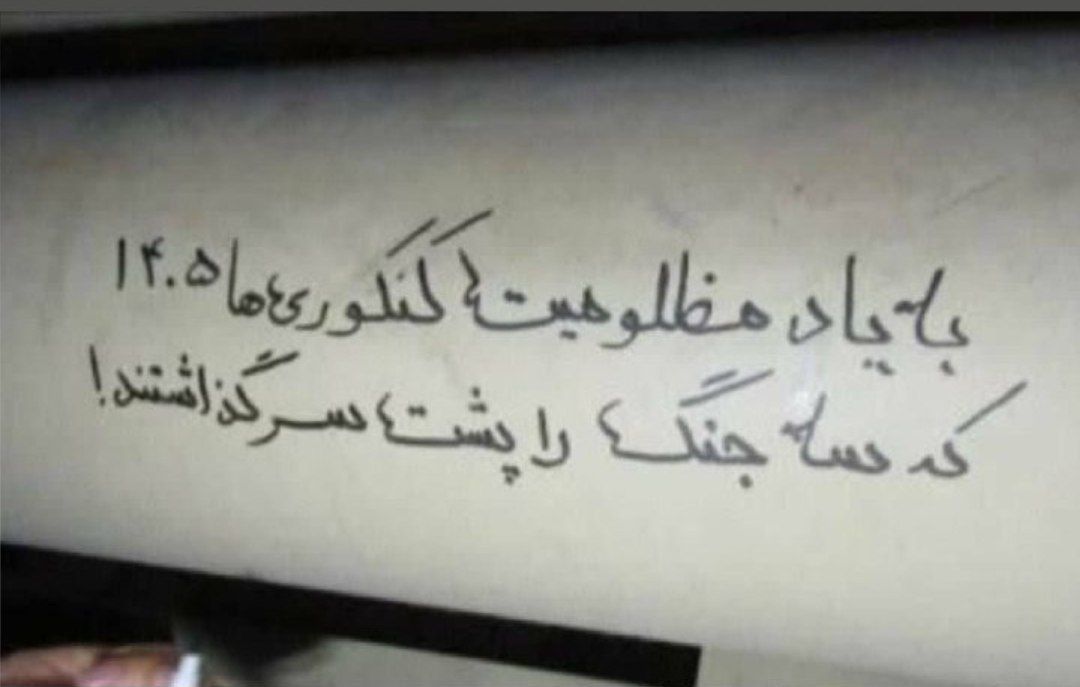 به یاد مظلومیت کنکوری ها ۱۴۰۵
که سه جنگ را پشت سر گذاشتند!